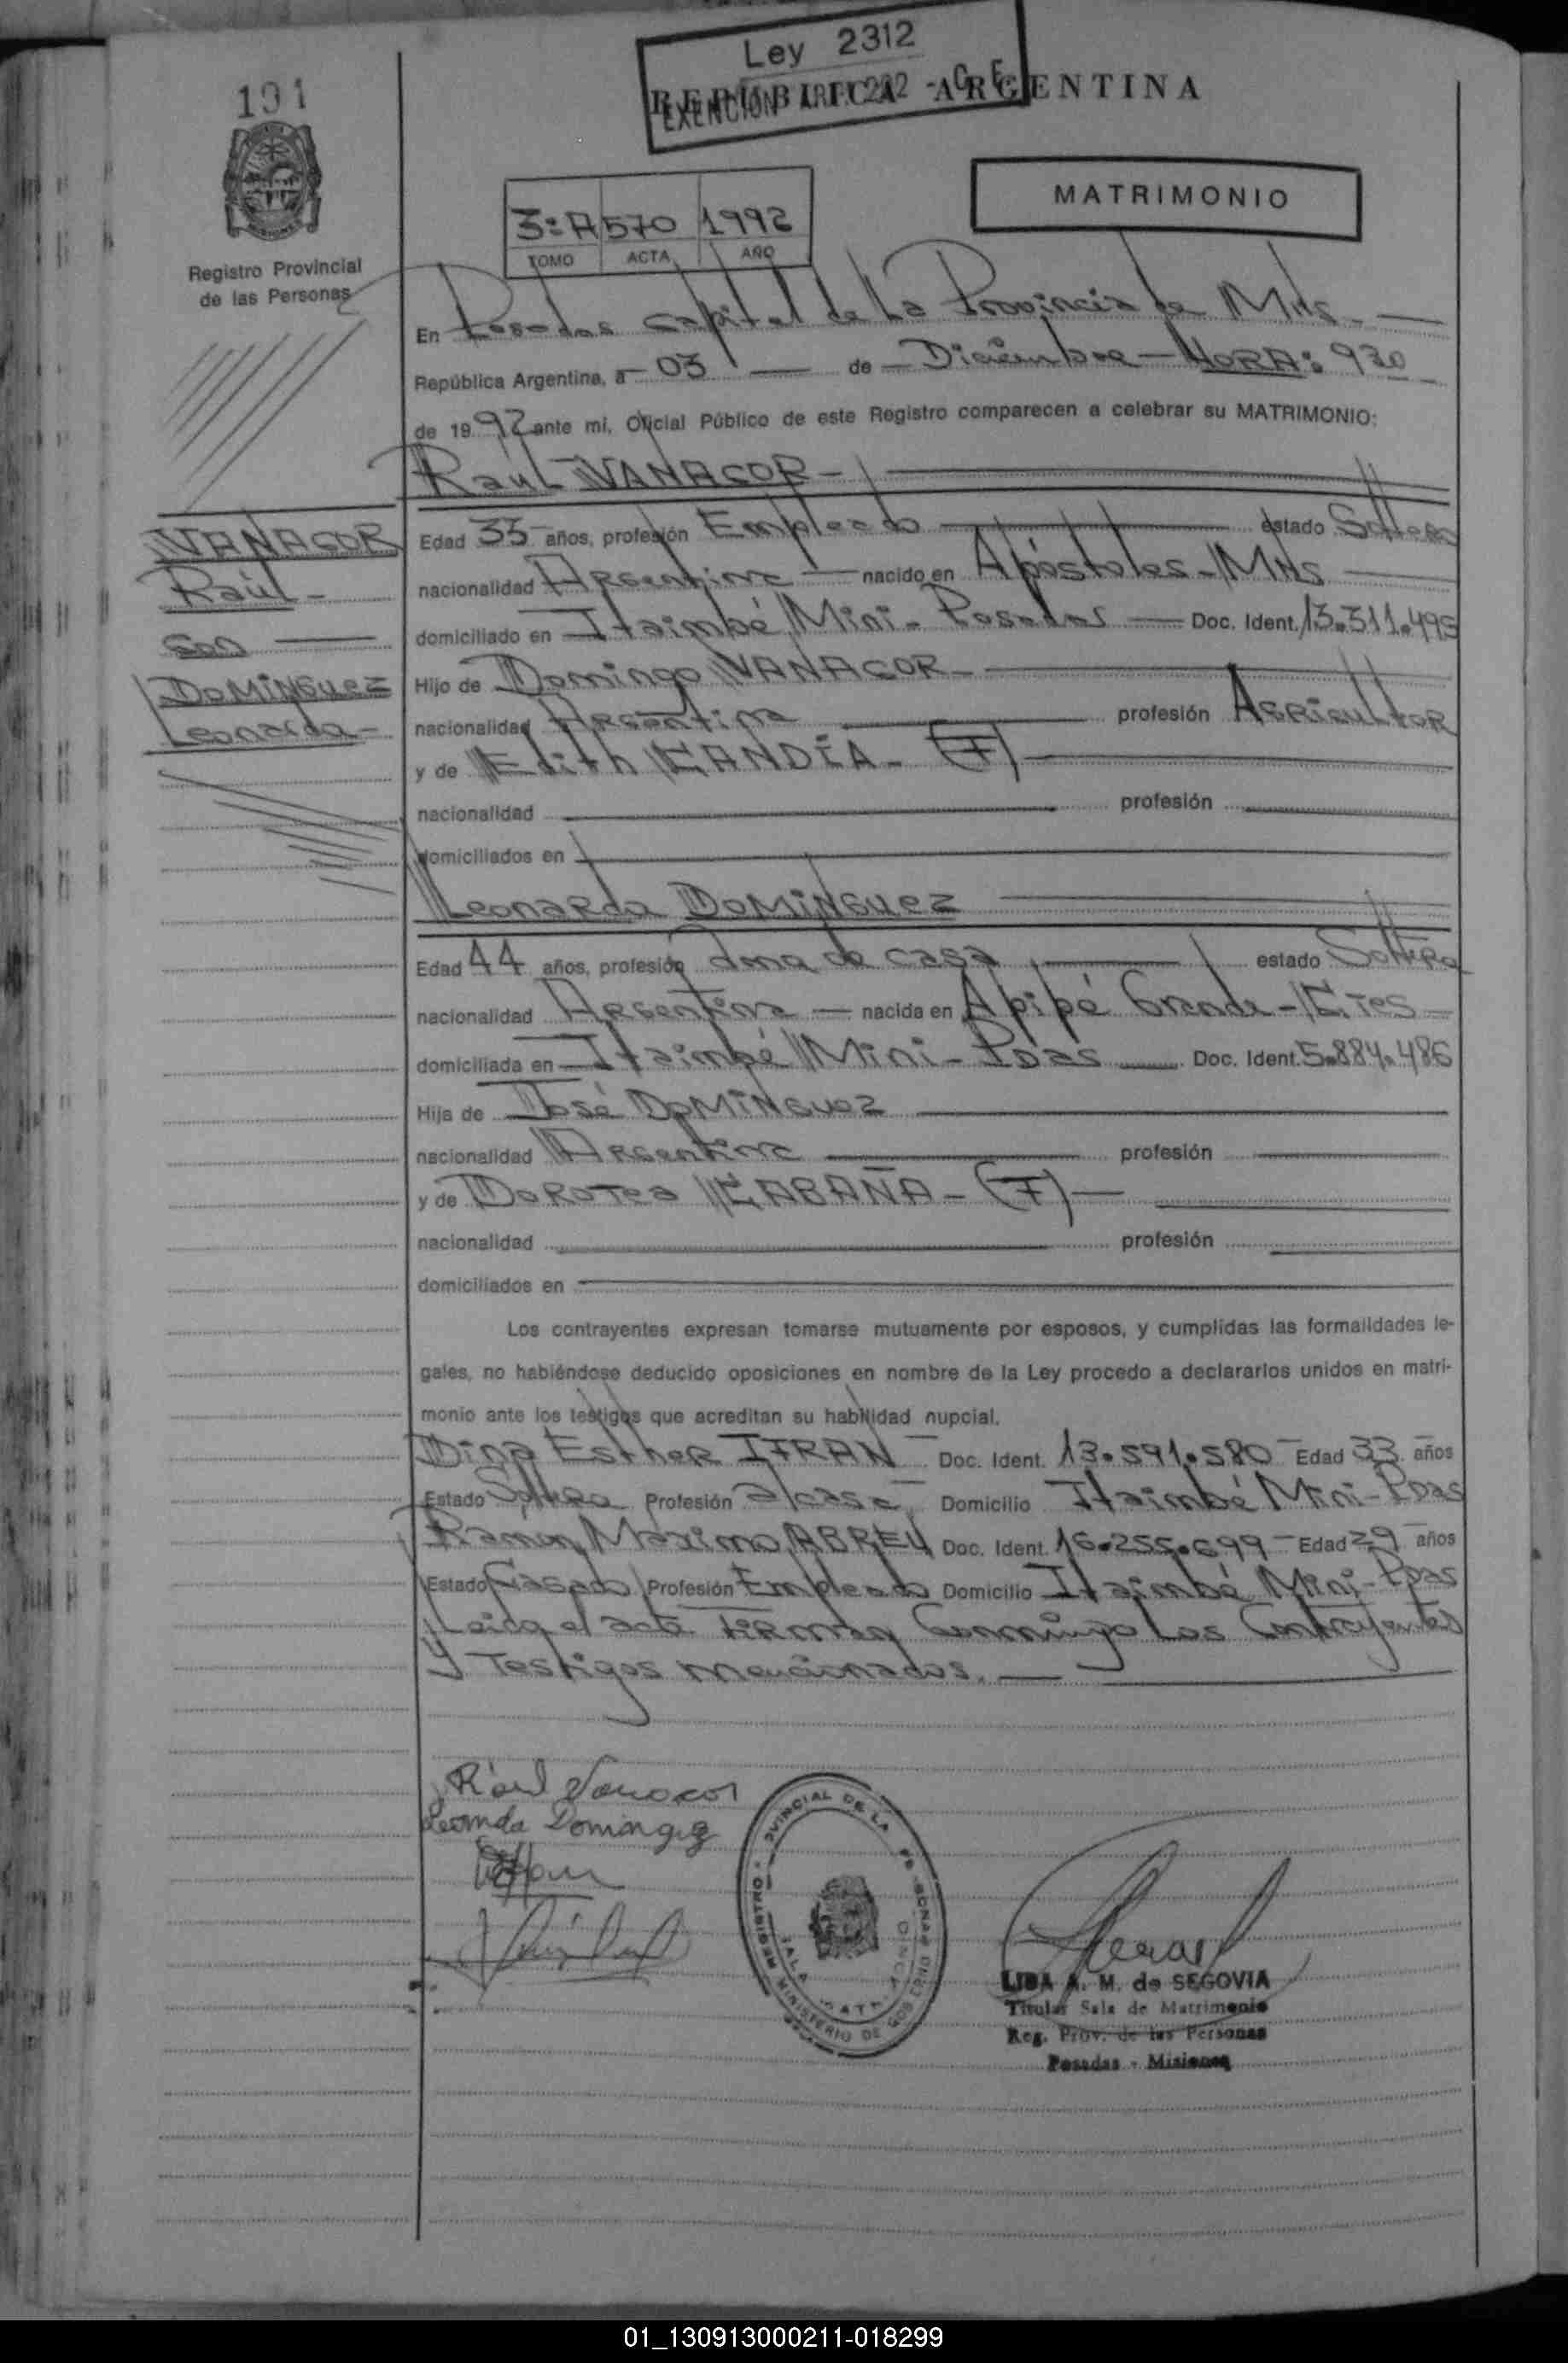 191
Ley 2312
EXENCION ART. 222 - C. F.
REPUBLICA ARGENTINA
MATRIMONIO
3:A 570 1992
TOMO ACTA AÑO
Registro Provincial
de las Personas
En Posadas Capital de La Provincia de Mnes. —
República Argentina, a — 03 — de — Diciembre — HORA: 9 30
de 19 92 ante mi, Oficial Público de este Registro comparecen a celebrar su MATRIMONIO:
Raúl VANACOR —
VANACOR
Raúl —
con —
DOMINGUEZ
Leonarda —
Edad 35 años, profesión Empleado — estado Soltero
nacionalidad Argentina — nacido en Apóstoles - Mnes —
domiciliado en — Itaimbé Mini - Posadas — Doc. Ident. 13.311.495
Hijo de Domingo VANACOR —
nacionalidad Argentina — profesión Agricultor
y de Edith CANDIA - (F) —
nacionalidad profesión
domiciliados en
Leonarda DOMINGUEZ
Edad 44 años, profesión Ama de casa — estado Soltera
nacionalidad Argentina — nacida en Apipé Grande - Ctes —
domiciliada en — Itaimbé Mini - Pdas — Doc. Ident. 5.884.486
Hija de José DOMINGUEZ
nacionalidad Argentina — profesión
y de Dorotea CABAÑA - (F) —
nacionalidad profesión
domiciliados en
Los contrayentes expresan tomarse mutuamente por esposos, y cumplidas las formalidades le-
gales, no habiéndose deducido oposiciones en nombre de la Ley procedo a declararlos unidos en matri-
monio ante los testigos que acreditan su habilidad nupcial.
Dina Esther IFRAN — Doc. Ident. 13.591.580 — Edad 33 años
Estado Soltera Profesión a/casa Domicilio Itaimbé Mini - Pdas
Ramon Maximo ABREU Doc. Ident. 16.255.699 — Edad 29 años
Estado Casado Profesión Empleado Domicilio Itaimbé Mini - Pdas
Leida el acta firman Conmigo Los Contrayentes
y Testigos mencionados. —
Raul Vanacor
Leonarda Dominguez
LIBA A. M. de SEGOVIA
Titular Sala de Matrimonio
Reg. Prov. de las Personas
Posadas - Misiones
01_130913000211-018299